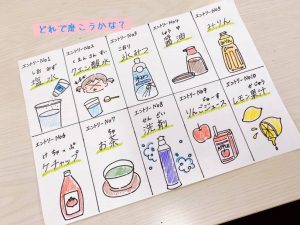 どれで磨こうかな？
エントリーNo1
しお みず
塩水
エントリーNo2
さん すい
クエン酸水
エントリーNo3
こおり
氷みつ
エントリーNo4
しょう ゆ
醤油
エントリーNo5
みりん
エントリーNo6
けちゃっぷ
ケチャップ
エントリーNo7
ちゃ
お茶
エントリーNo8
せん ざい
洗剤
エントリーNo9
りんごジュース
エントリーNo10
かじゅう
レモン果汁